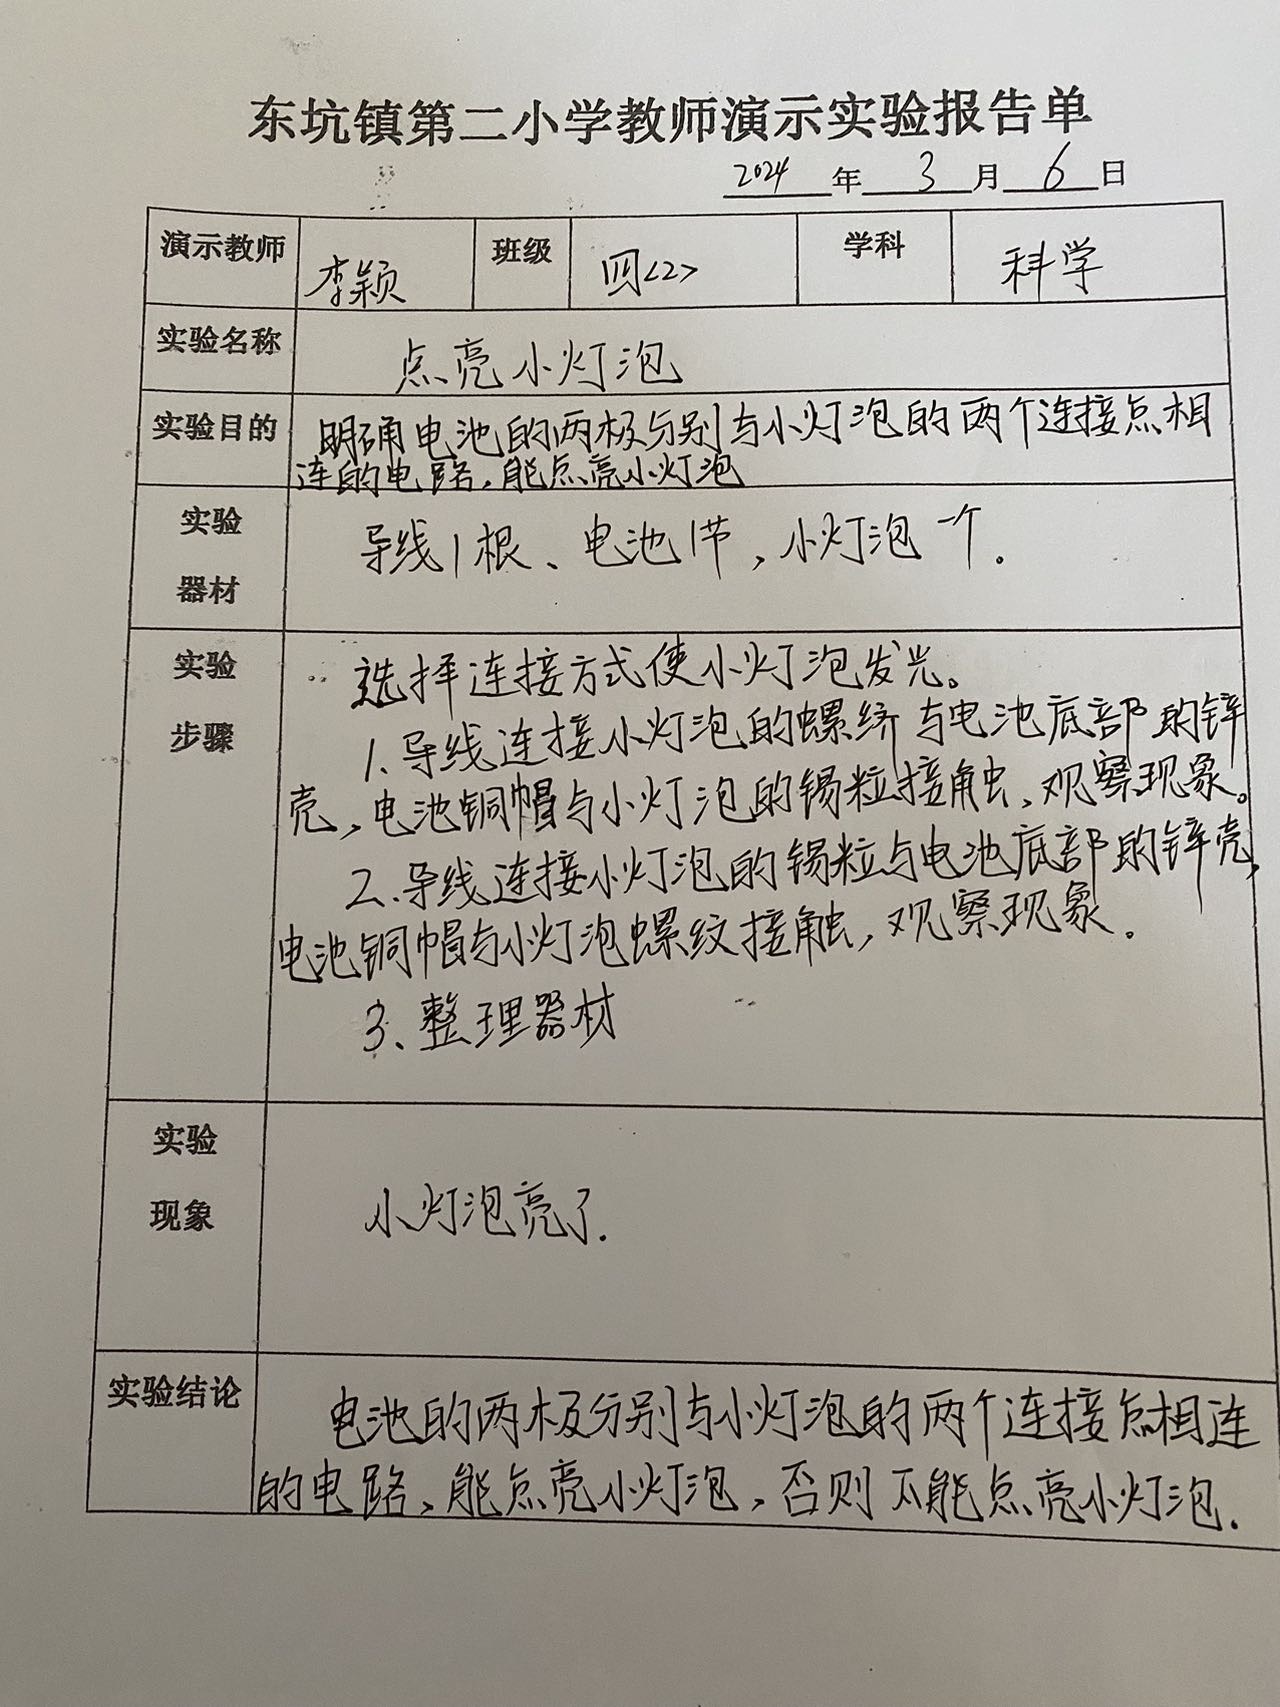 东坑镇第二小学教师演示实验报告单
2024年3月6日
演示教师 李颖 班级 四<2> 学科 科学
实验名称 点亮小灯泡
实验目的 明确电池的两极分别与小灯泡的两个连接点相
连的电路,能点亮小灯泡
实验
器材
导线1根、电池1节,小灯泡一个.
实验
步骤
选择连接方式使小灯泡发光。
1.导线连接小灯泡的螺纹与电池底部的锌
壳,电池铜帽与小灯泡的锡粒接触,观察现象。
2.导线连接小灯泡的锡粒与电池底部的锌壳,
电池铜帽与小灯泡螺纹接触,观察现象.
3、整理器材
实验
现象
小灯泡亮了.
实验结论 电池的两极分别与小灯泡的两个连接点相连
的电路,能点亮小灯泡,否则不能点亮小灯泡.